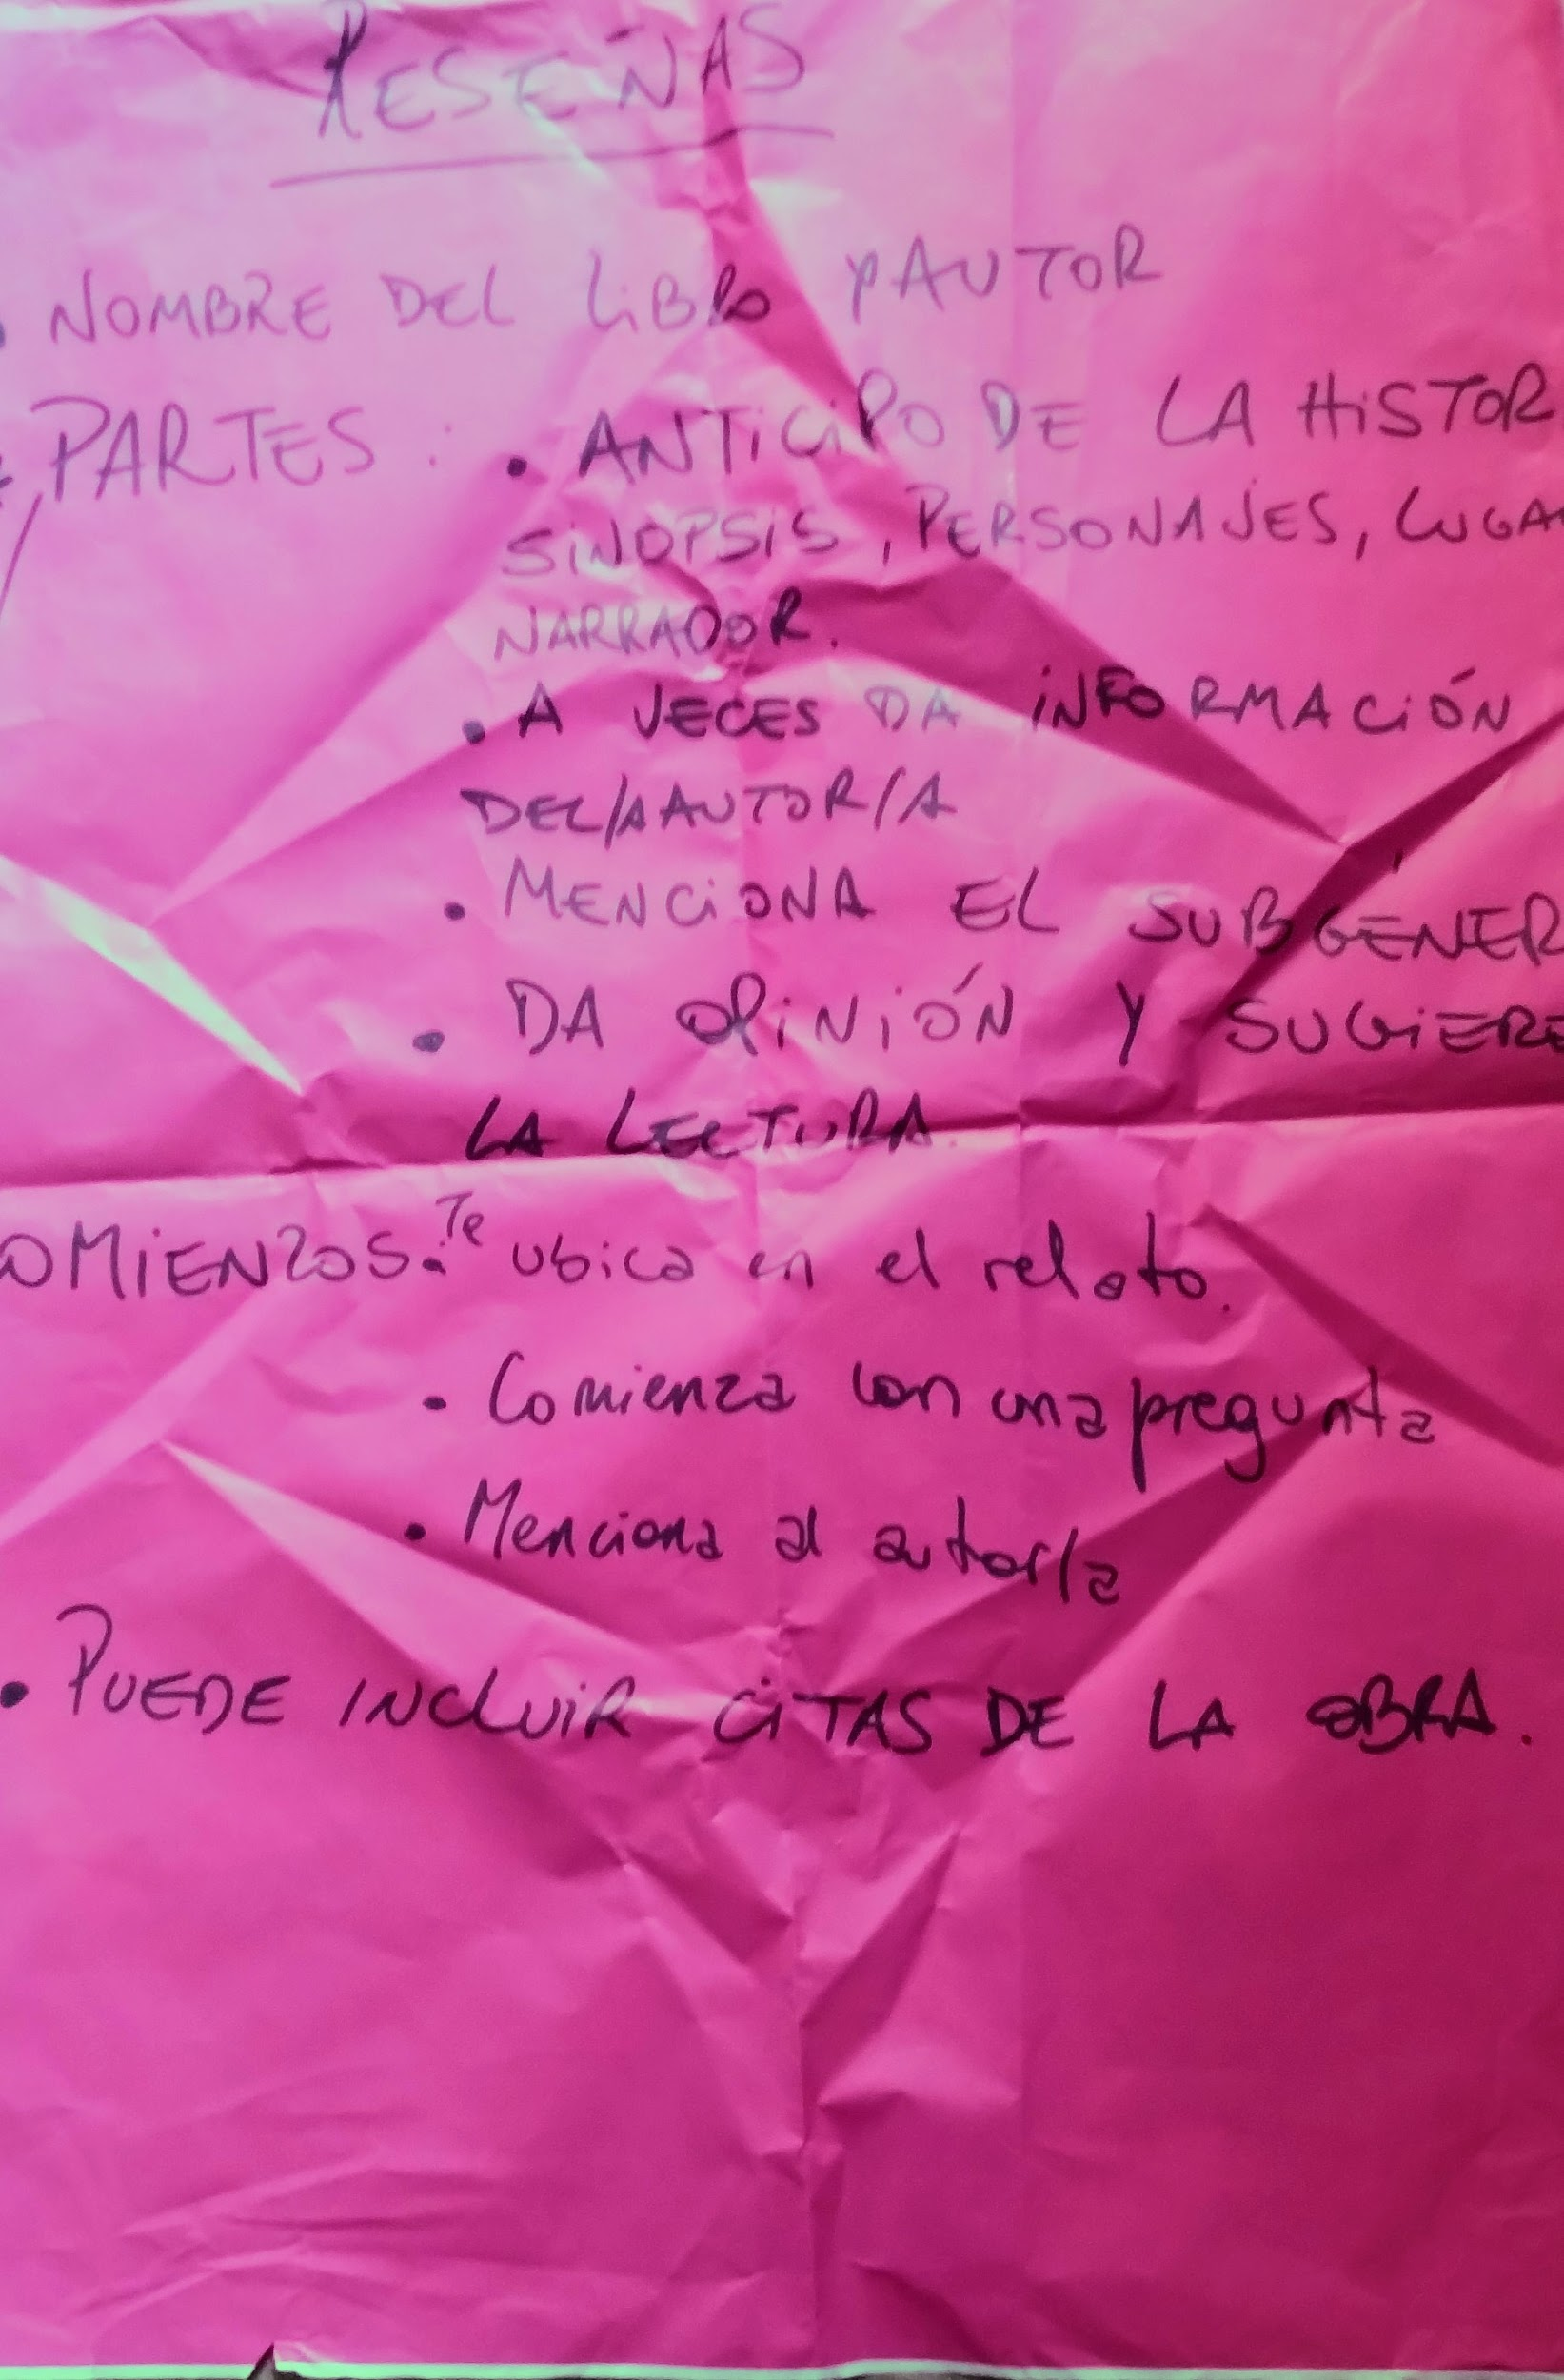 RESEÑAS
• NOMBRE DEL LiBRO Y AUTOR
PARTES : • ANTiCiPO DE LA HiSTOR
SiNOPSiS, PERSONAJES, LUGA
NARRADOR.
• A VECES DA iNFORMACiÓN
DEL/A AUTOR/A
• MENCiONA EL SUBGÉNER
• DA OPiNiÓN Y SUGiERE
LA LECTURA.
OMiENZOS: Te ubica en el relato.
• Comienza con una pregunta
• Menciona al autor/a
• PUEDE INCLUiR CiTAS DE LA OBRA.